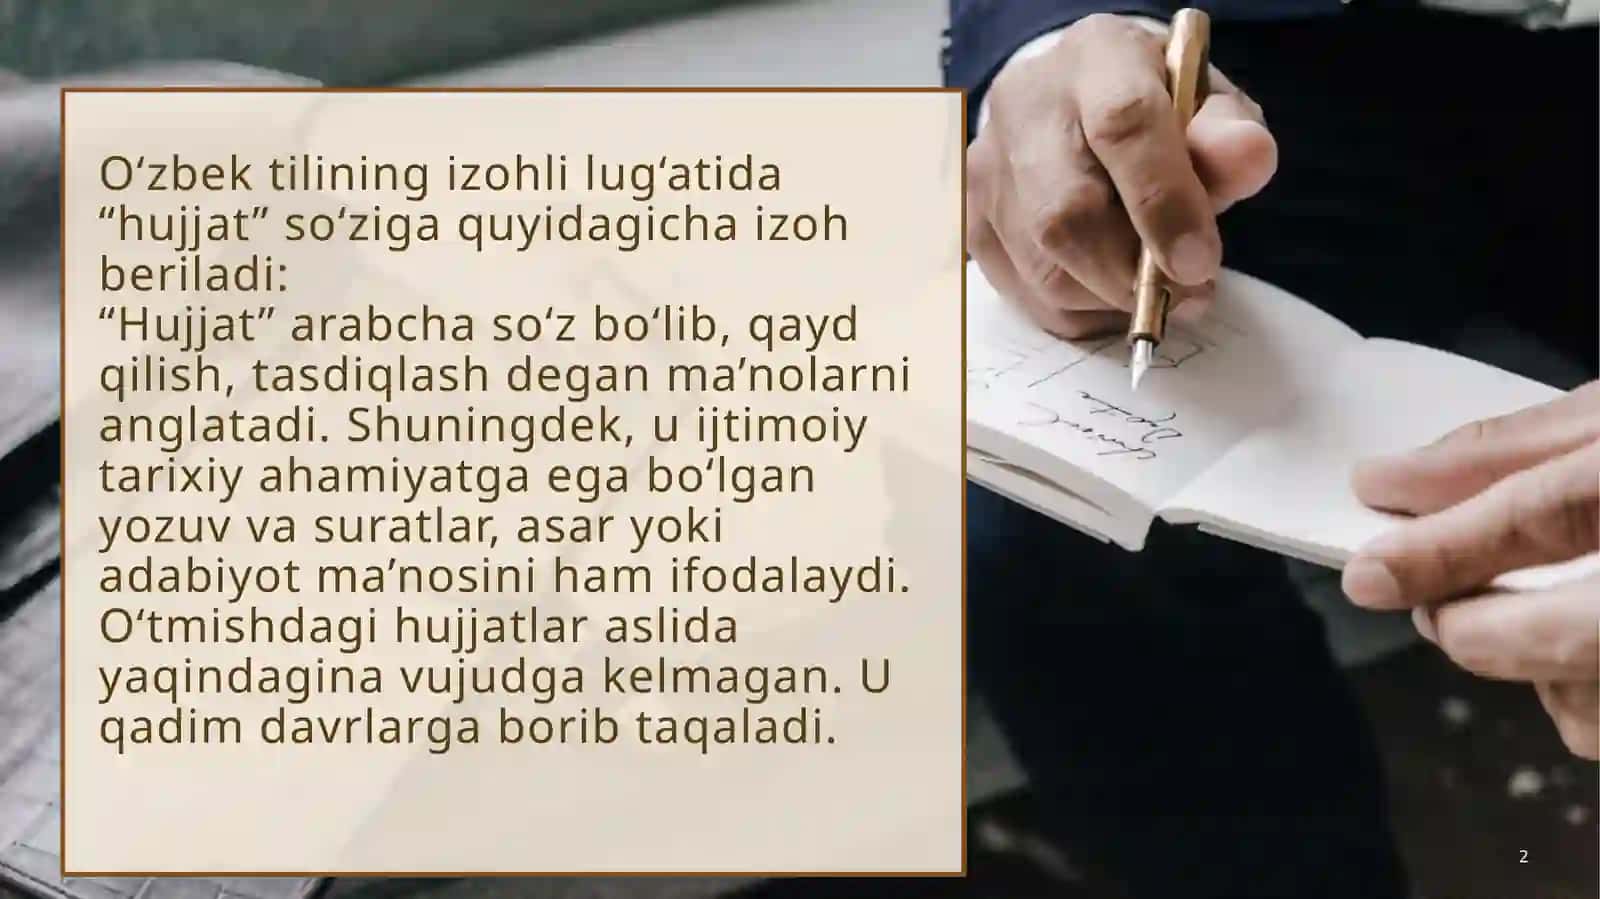 O‘zbek tilining izohli lug‘atida
“hujjat” so‘ziga quyidagicha izoh
beriladi:
“Hujjat” arabcha so‘z bo‘lib, qayd
qilish, tasdiqlash degan ma’nolarni
anglatadi. Shuningdek, u ijtimoiy
tarixiy ahamiyatga ega bo‘lgan
yozuv va suratlar, asar yoki
adabiyot ma’nosini ham ifodalaydi.
O‘tmishdagi hujjatlar aslida
yaqindagina vujudga kelmagan. U
qadim davrlarga borib taqaladi.
2